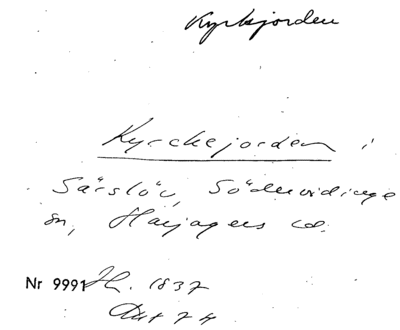 Kyrkjorden
Kyrckejorden i
Särslöv, Södervidinge
sn, Harjagers hd.
Nr 9991 H. 1837
Akt 74